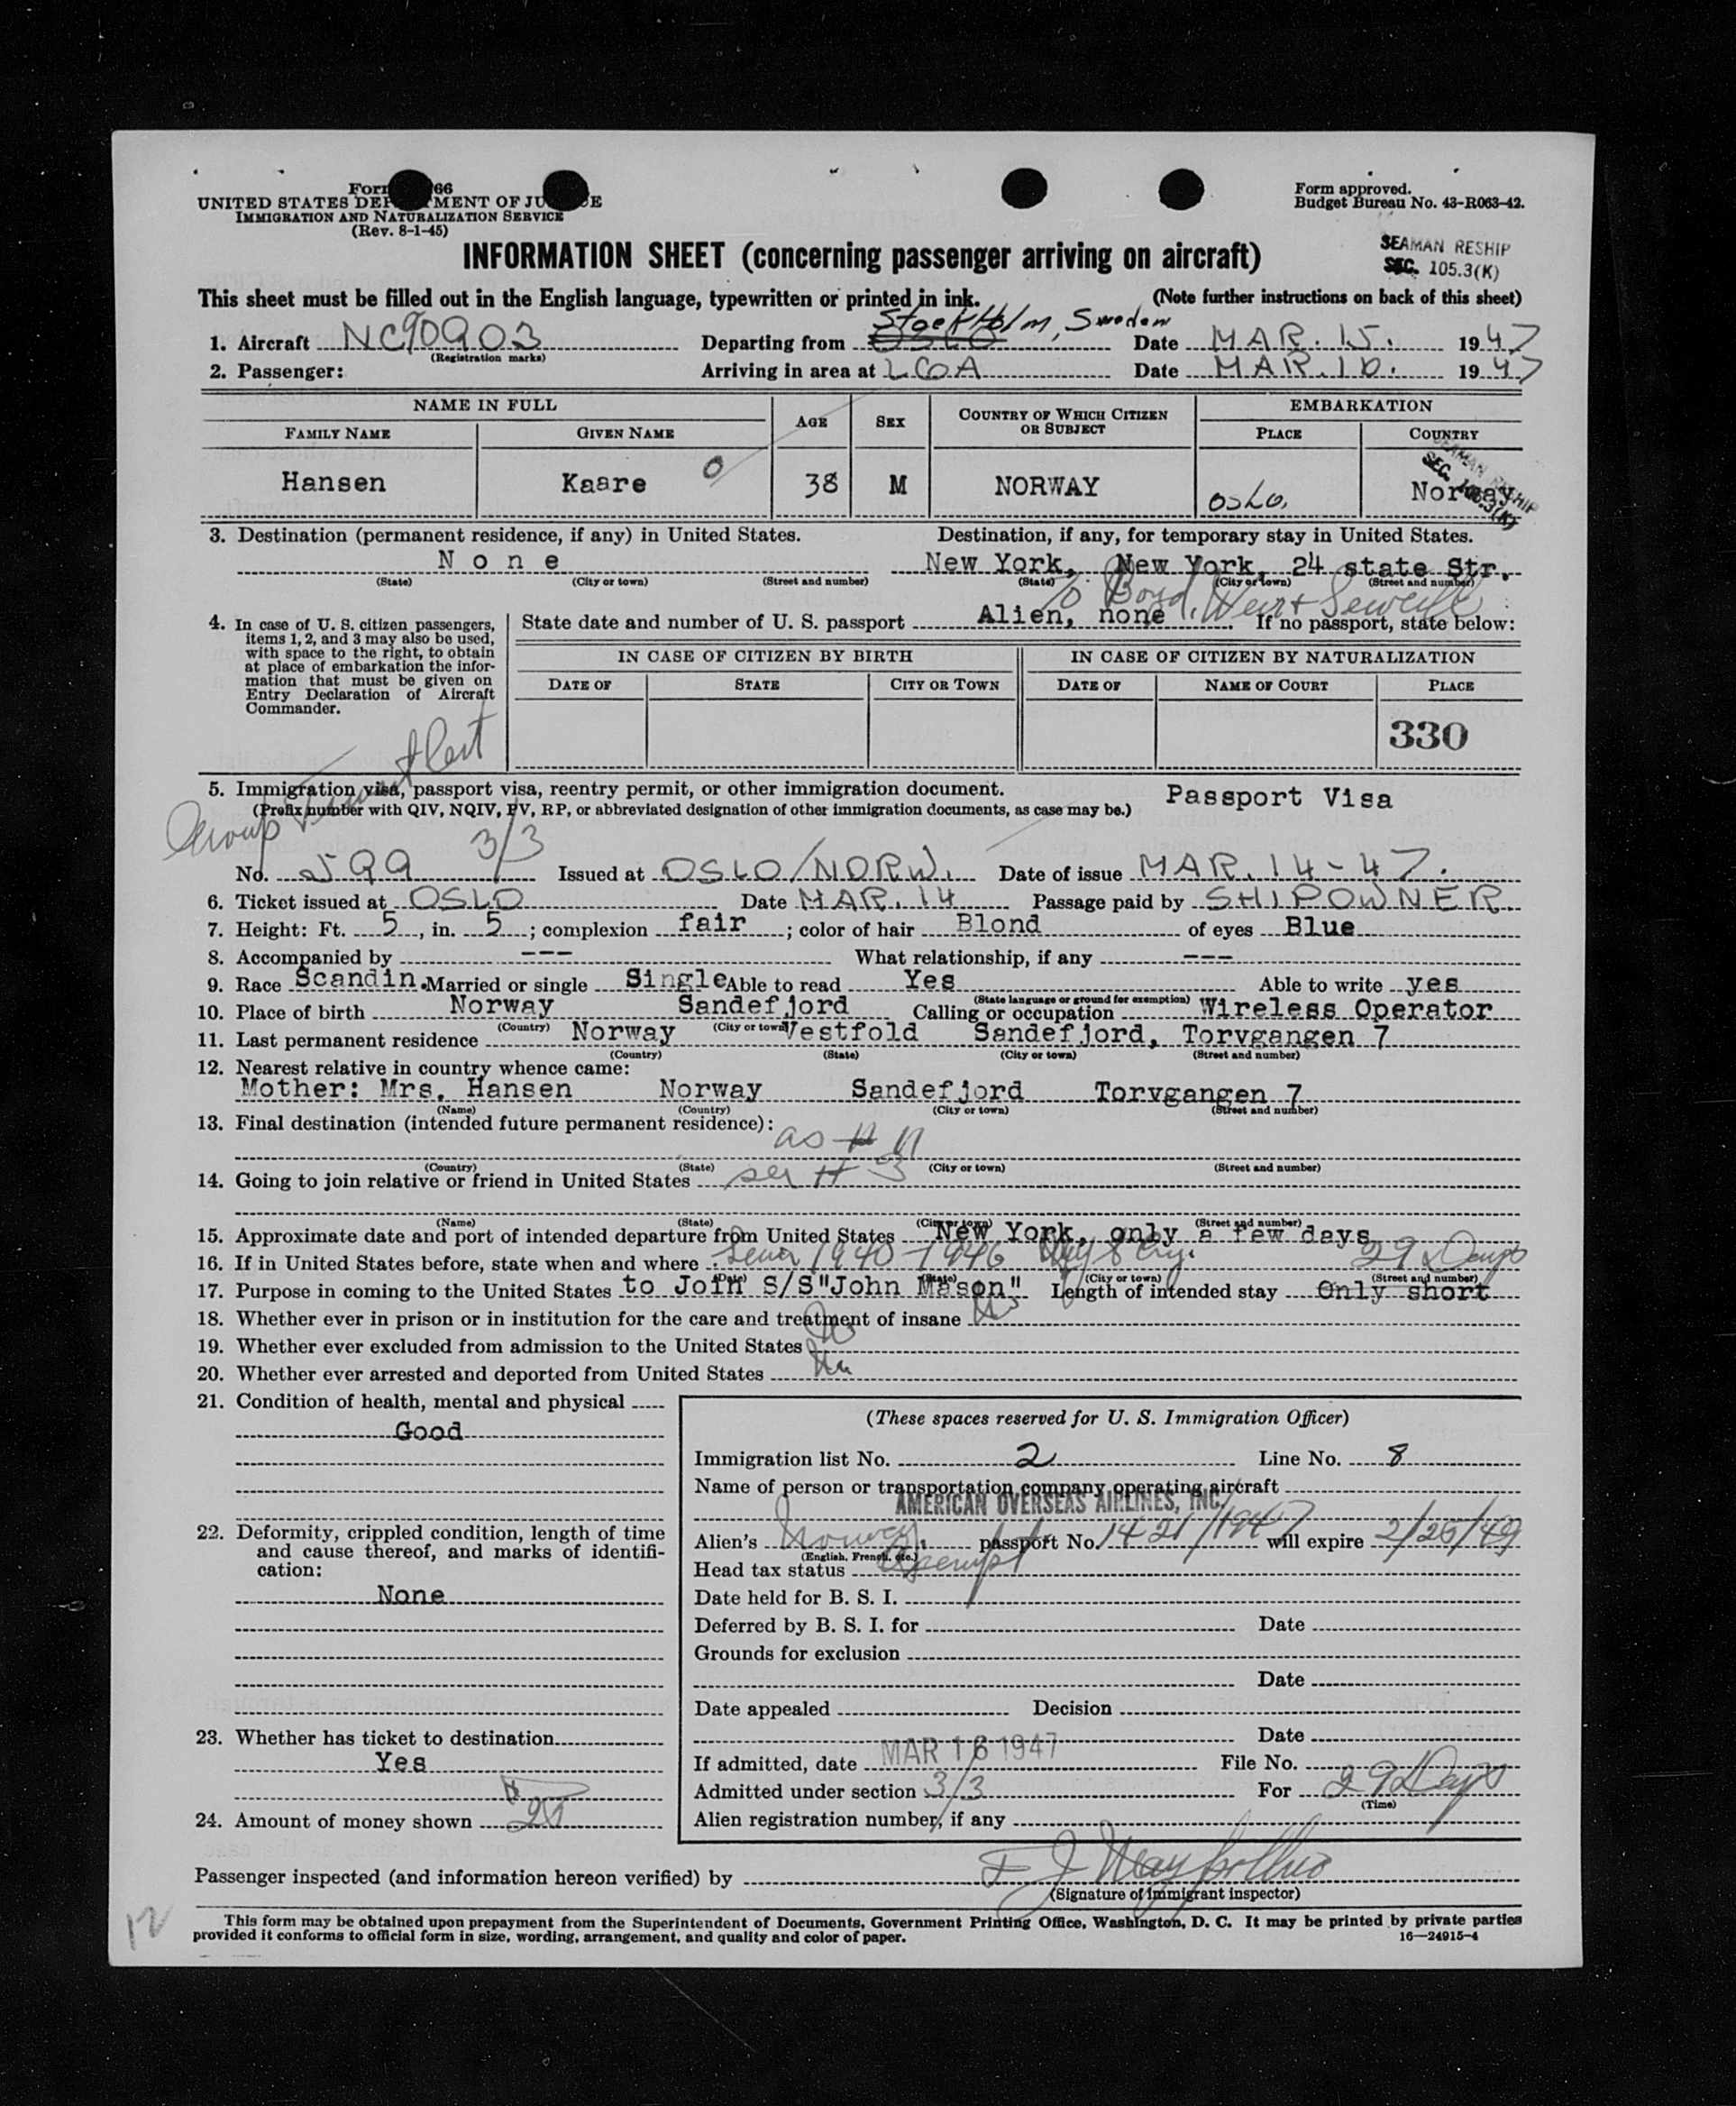 Form 66
UNITED STATES DEPARTMENT OF JUSTICE
IMMIGRATION AND NATURALIZATION SERVICE
(Rev. 8-1-45)
Form approved.
Budget Bureau No. 43-R063-42.
INFORMATION SHEET (concerning passenger arriving on aircraft)
SEAMAN RESHIP
SEC. 105.3(K)
This sheet must be filled out in the English language, typewritten or printed in ink. (Note further instructions on back of this sheet)
Stockholm, Sweden
1. Aircraft NC90903 Departing from OSLO Date MAR. 15. 1947
(Registration marks)
2. Passenger: Arriving in area at LGA Date MAR. 16. 1947
NAME IN FULL AGE SEX COUNTRY OF WHICH CITIZEN OR SUBJECT EMBARKATION
FAMILY NAME GIVEN NAME PLACE COUNTRY
SEAMAN RESHIP
SEC. 105.3(K)
Hansen Kaare O 38 M NORWAY OSLO. Norway
3. Destination (permanent residence, if any) in United States. Destination, if any, for temporary stay in United States.
None New York, New York, 24 state Str.
(State) (City or town) (Street and number) (State) (City or town) (Street and number)
% Boyd, Weir & Sewell
4. In case of U. S. citizen passengers, items 1, 2, and 3 may also be used, with space to the right, to obtain at place of embarkation the information that must be given on Entry Declaration of Aircraft Commander.
State date and number of U. S. passport Alien, none. If no passport, state below:
IN CASE OF CITIZEN BY BIRTH IN CASE OF CITIZEN BY NATURALIZATION
DATE OF STATE CITY OR TOWN DATE OF NAME OF COURT PLACE
330
5. Immigration visa, passport visa, reentry permit, or other immigration document. Passport Visa
(Prefix number with QIV, NQIV, PV, RP, or abbreviated designation of other immigration documents, as case may be.)
Group
3/3
No. 599 Issued at OSLO/NORW. Date of issue MAR. 14-47.
6. Ticket issued at OSLO Date MAR. 14 Passage paid by SHIPOWNER
7. Height: Ft. 5, in. 5; complexion fair; color of hair Blond of eyes Blue
8. Accompanied by --- What relationship, if any ---
9. Race Scandin. Married or single Single Able to read Yes Able to write yes
(State language or ground for exemption)
10. Place of birth Norway Sandefjord Calling or occupation Wireless Operator
(Country) (City or town)
11. Last permanent residence Norway Vestfold Sandefjord, Torvgangen 7
(Country) (State) (City or town) (Street and number)
12. Nearest relative in country whence came:
Mother: Mrs. Hansen Norway Sandefjord Torvgangen 7
(Name) (Country) (City or town) (Street and number)
13. Final destination (intended future permanent residence):
as # 11
(Country) (State) (City or town) (Street and number)
14. Going to join relative or friend in United States see # 3
(Name) (State) (City or town) (Street and number)
15. Approximate date and port of intended departure from United States New York, only a few days
16. If in United States before, state when and where 1940-1946 NY City. 29 Days
(Date) (State) (City or town) (Street and number)
17. Purpose in coming to the United States to Join S/S "John Mason" Length of intended stay Only short
18. Whether ever in prison or in institution for the care and treatment of insane No
19. Whether ever excluded from admission to the United States No
20. Whether ever arrested and deported from United States No
21. Condition of health, mental and physical
Good
22. Deformity, crippled condition, length of time and cause thereof, and marks of identification:
None
23. Whether has ticket to destination
Yes
24. Amount of money shown 20
(These spaces reserved for U. S. Immigration Officer)
Immigration list No. 2 Line No. 8
Name of person or transportation company operating aircraft
AMERICAN OVERSEAS AIRLINES, INC.
Alien's Norway passport No. 1421/1947 will expire 2/25/49
(English, French, etc.)
Head tax status Exempt
Date held for B. S. I.
Deferred by B. S. I. for Date
Grounds for exclusion
Date
Date appealed Decision
Date
If admitted, date MAR 16 1947 File No.
Admitted under section 3/3 For 29 Days
(Time)
Alien registration number, if any
Passenger inspected (and information hereon verified) by
(Signature of immigrant inspector)
12
This form may be obtained upon prepayment from the Superintendent of Documents, Government Printing Office, Washington, D. C. It may be printed by private parties
provided it conforms to official form in size, wording, arrangement, and quality and color of paper. 16—24915-4